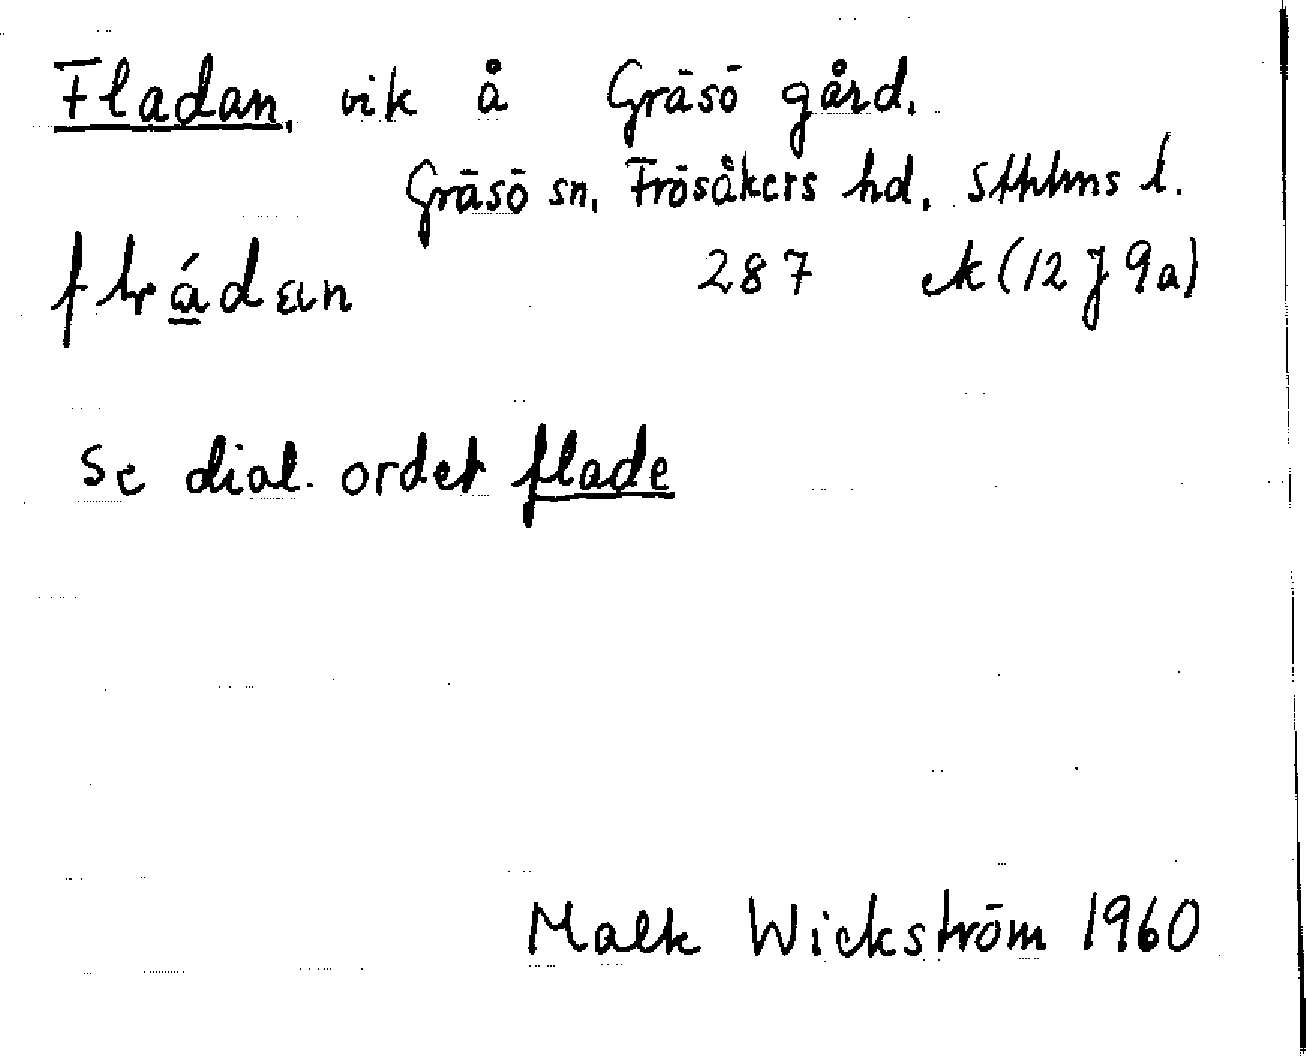 Fladan, vik å Gräsö gård.
Gräsö sn, Frösåkers hd, Sthlms l.
287 ek (12 J 9a)
Se dial. ordet flade
Wickström 1960